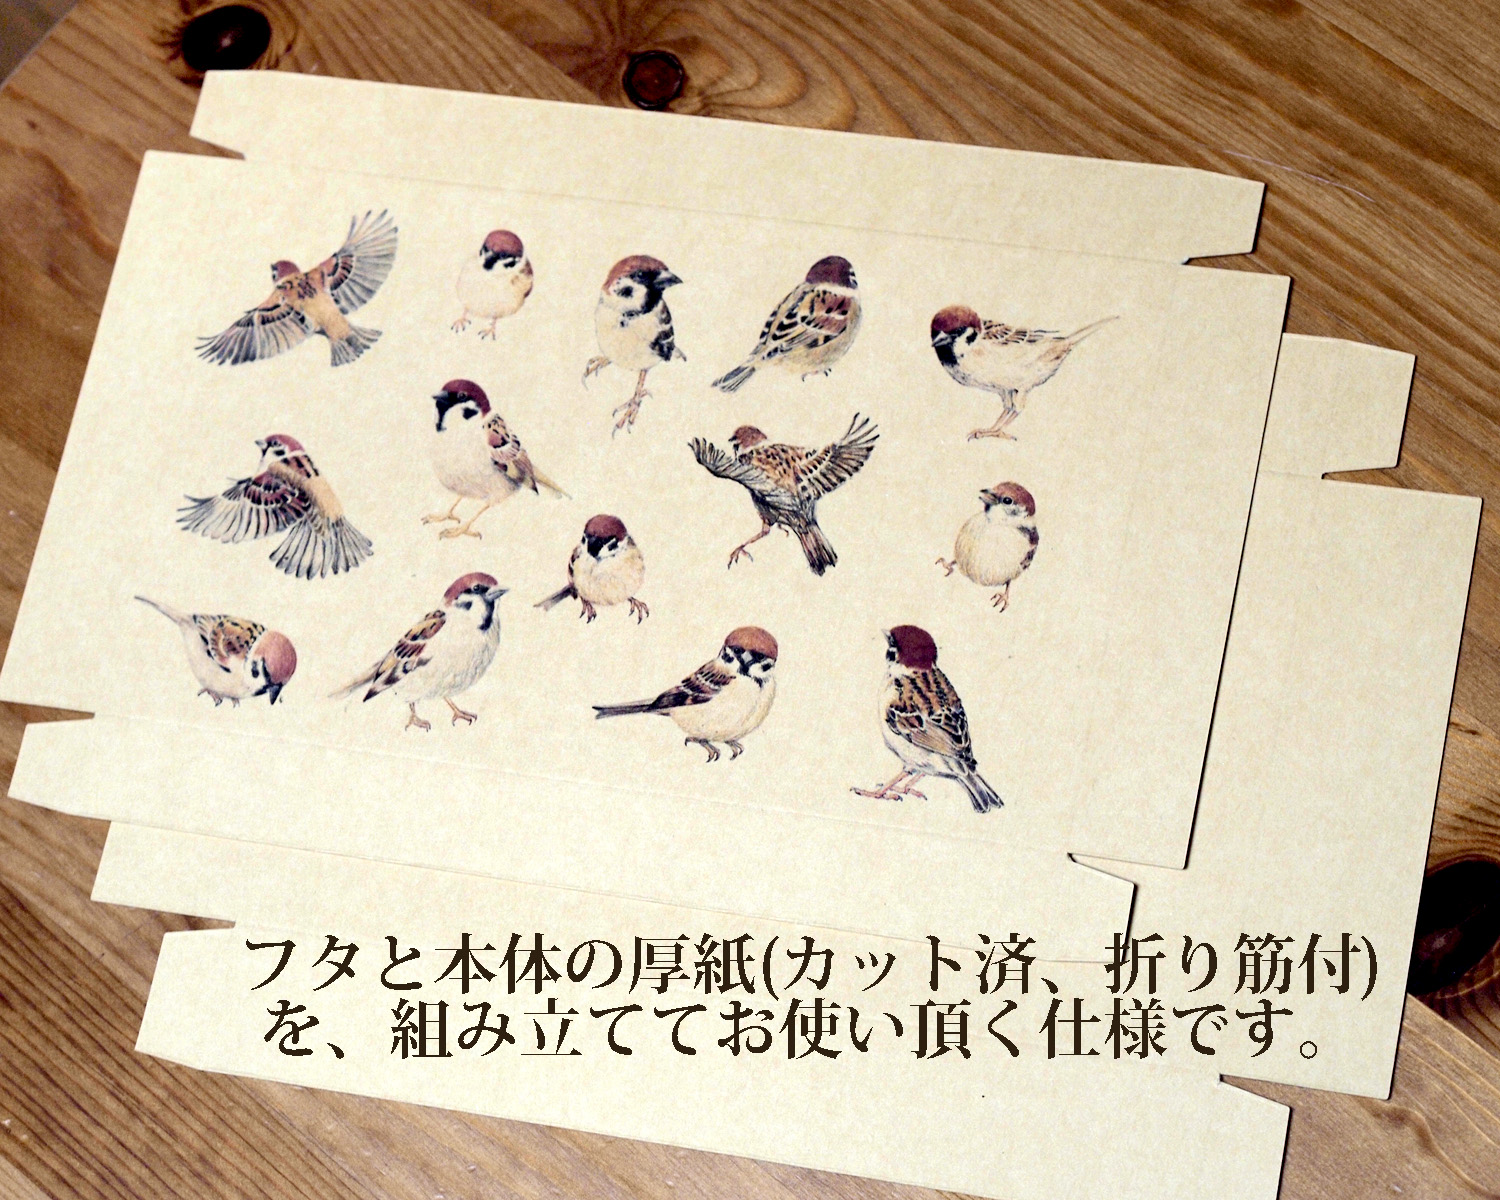 フタと本体の厚紙(カット済、折り筋付)
を、組み立ててお使い頂く仕様です。